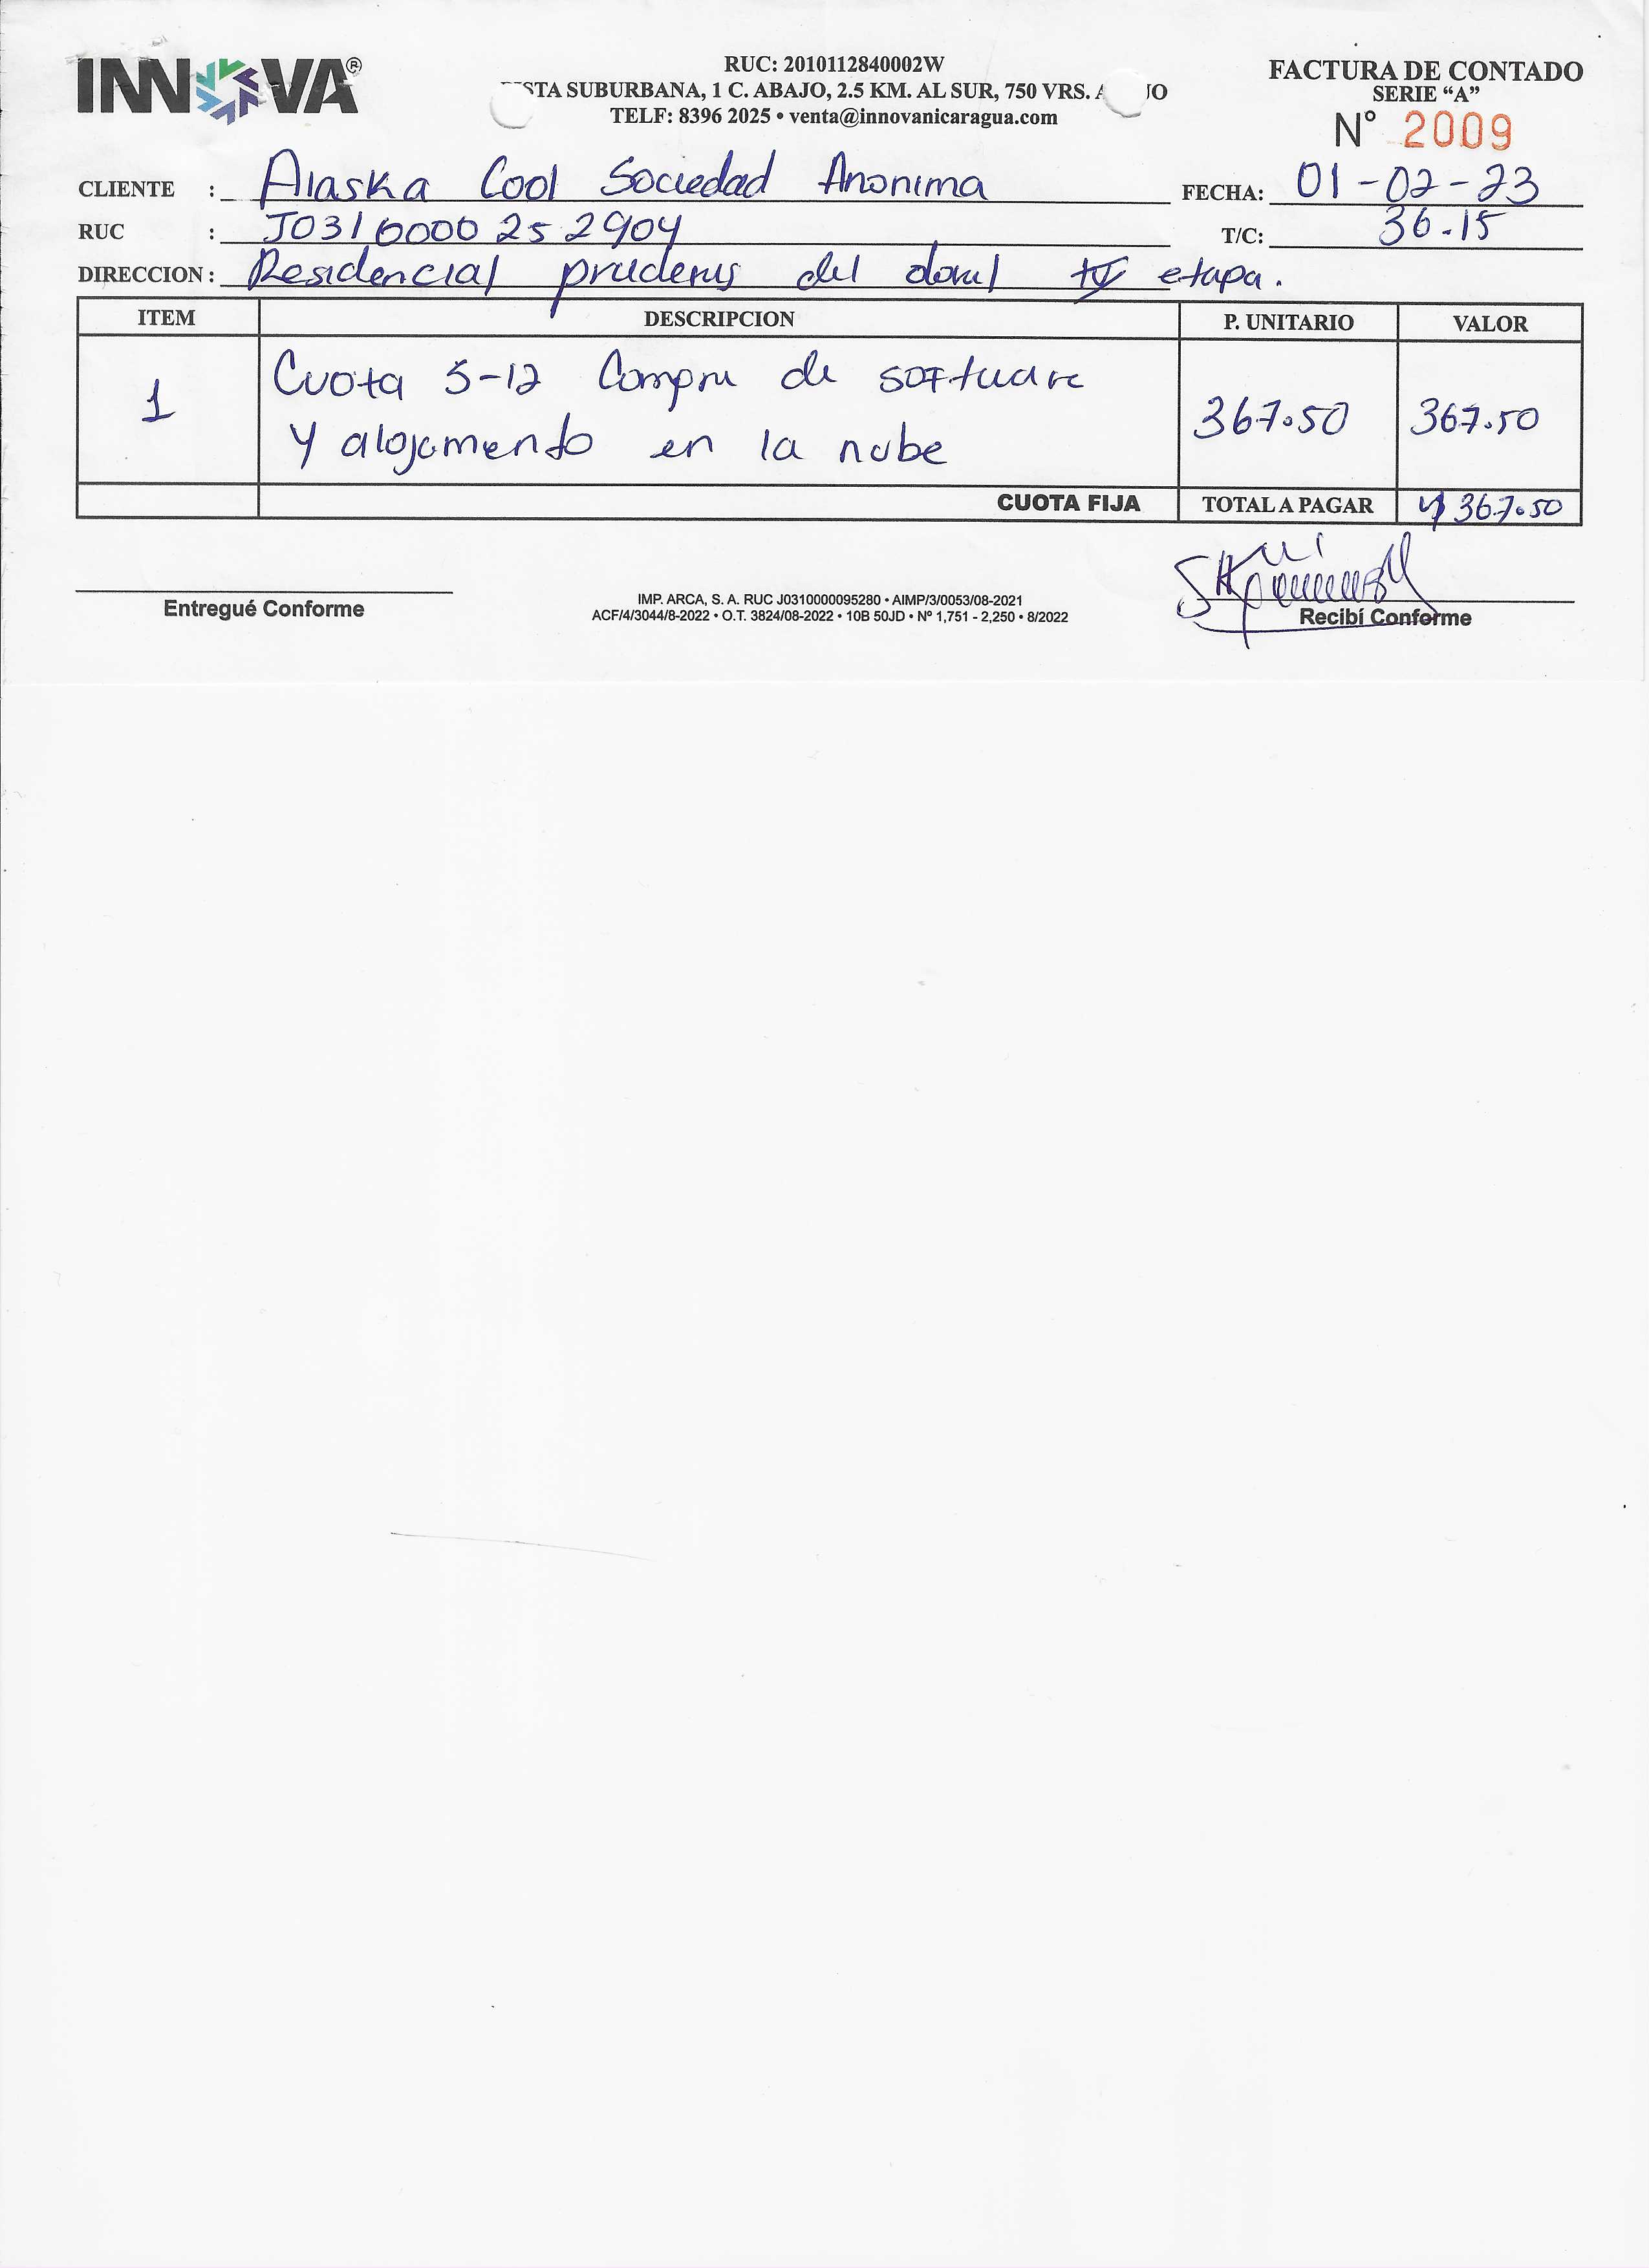 INNOVA®
RUC: 2010112840002W
STA SUBURBANA, 1 C. ABAJO, 2.5 KM. AL SUR, 750 VRS. A JO
TELF: 8396 2025 • venta@innovanicaragua.com
FACTURA DE CONTADO
SERIE “A”
N° 2009
CLIENTE : Alaska Cool Sociedad Anonima
FECHA: 01-02-23
RUC : J0310000252904
T/C: 36.15
DIRECCION : Residencial del etapa.
ITEM DESCRIPCION P. UNITARIO VALOR
1 Cuota 5-12 Compra de software 367.50 367.50
Y alojamento en la nube
CUOTA FIJA TOTAL A PAGAR 367.50
Entregué Conforme
IMP. ARCA, S. A. RUC J0310000095280 • AIMP/3/0053/08-2021
ACF/4/3044/8-2022 • O.T. 3824/08-2022 • 10B 50JD • Nº 1,751 - 2,250 • 8/2022
Recibí Conforme